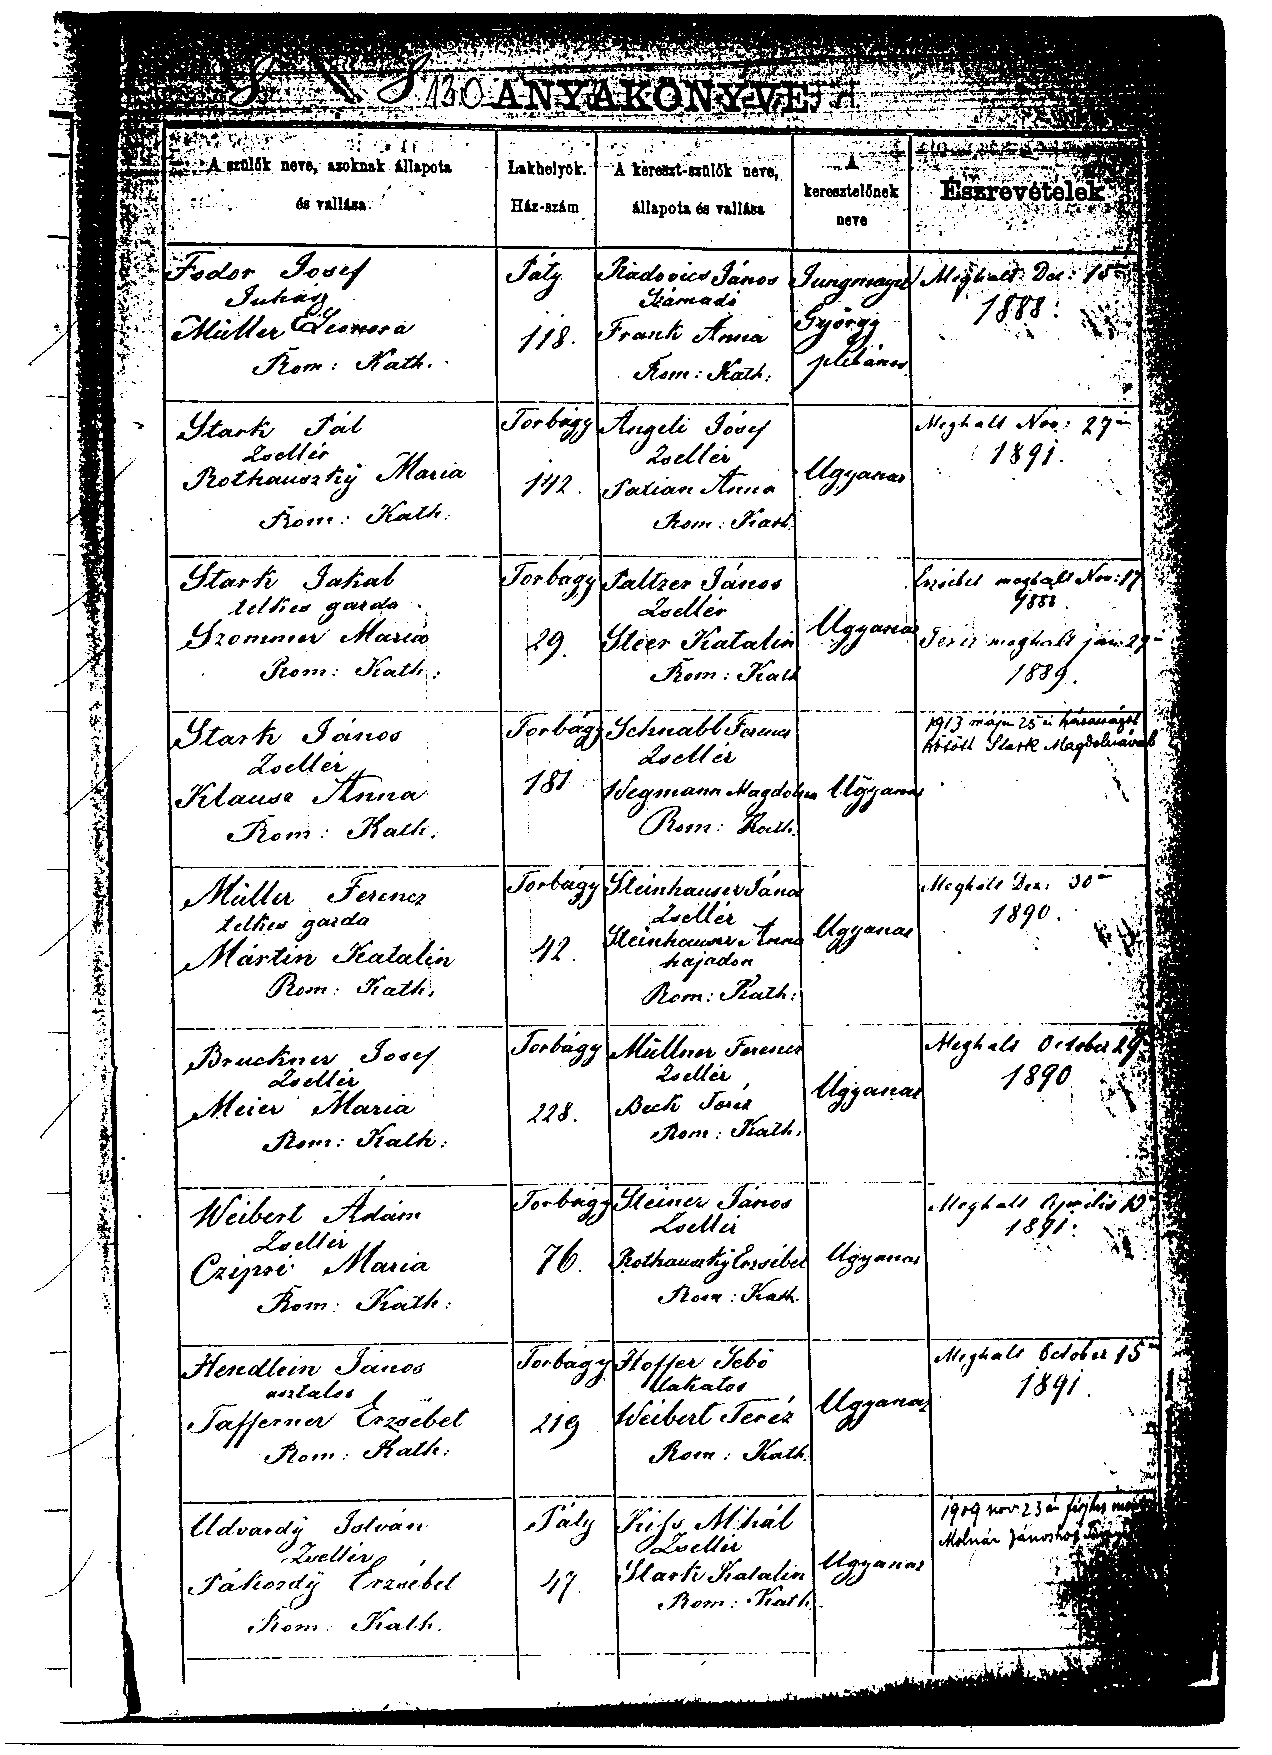 130 ANYAKÖNYVE
A szülők neve, azoknak állapota
és vallása.
Lakhelyök.
Ház-szám
A kereszt-szülők neve,
állapota és vallása
A
keresztelőnek
neve
Észrevételek
Fodor Josef
Juhász
Müller Eleonora
Rom: Kath.
Páty
118.
Radovics János
Számadó
Frank Anna
Rom: Kath:
Jungmayer
György
plébános
Meghalt Dec: 15
1888.
Stark Pál
Zsellér
Rothauszky Maria
Rom: Kath.
Torbágy
142.
Angeli Jósef
Zsellér
Paxian Anna
Rom: Kath.
Ugyanaz
Meghalt Nov: 27
1891.
Stark Jakab
telkes gazda
Szommer Maria
Rom: Kath:
Torbágy
29.
Paltzer János
Zsellér
Steer Katalin
Rom: Kath
Ugyanaz
Erzsébet meghalt Nov: 17
1888.
Teréz meghalt jan: 29
1889.
Stark János
Zsellér
Klausz Anna
Rom: Kath.
Torbágy
181
Schnabl Ferencz
Zsellér
Wegmann Magdolna
Rom: Kath.
Ugyanaz
1913 május 25 én házasságot
kötött Stark Magdolnával
Müller Ferencz
telkes gazda
Mártin Katalin
Rom: Kath.
Torbágy
42.
Steinhauser János
Zsellér
Steinhauser Anna
hajadon
Rom: Kath:
Ugyanaz
Meghalt Dec: 30
1890.
Bruckner Josef
Zsellér
Meier Maria
Rom: Kath:
Torbágy
228.
Müllner Ferencz
Zsellér
Beck Teréz
Rom: Kath.
Ugyanaz
Meghalt October 29
1890
Weibert Ádám
Zsellér
Czipri Maria
Rom: Kath:
Torbágy
76.
Steiner János
Zsellér
Rothauszky Erzsébet
Rom: Kath.
Ugyanaz
Meghalt Április 10
1891.
Hendlein János
asztalos
Tafferner Erzsébet
Rom: Kath:
Torbágy
219
Hoffer Sebö
lakatos
Weibert Teréz
Rom: Kath.
Ugyanaz
Meghalt October 15
1891.
Udvardy István
Zsellér
Pákozdy Erzsébet
Rom: Kath.
Páty
47.
Kiss Mihál
Zsellér
Stark Katalin
Rom: Kath.
Ugyanaz
1909 nov 23 án férjhez ment
Molnár Jánoshoz